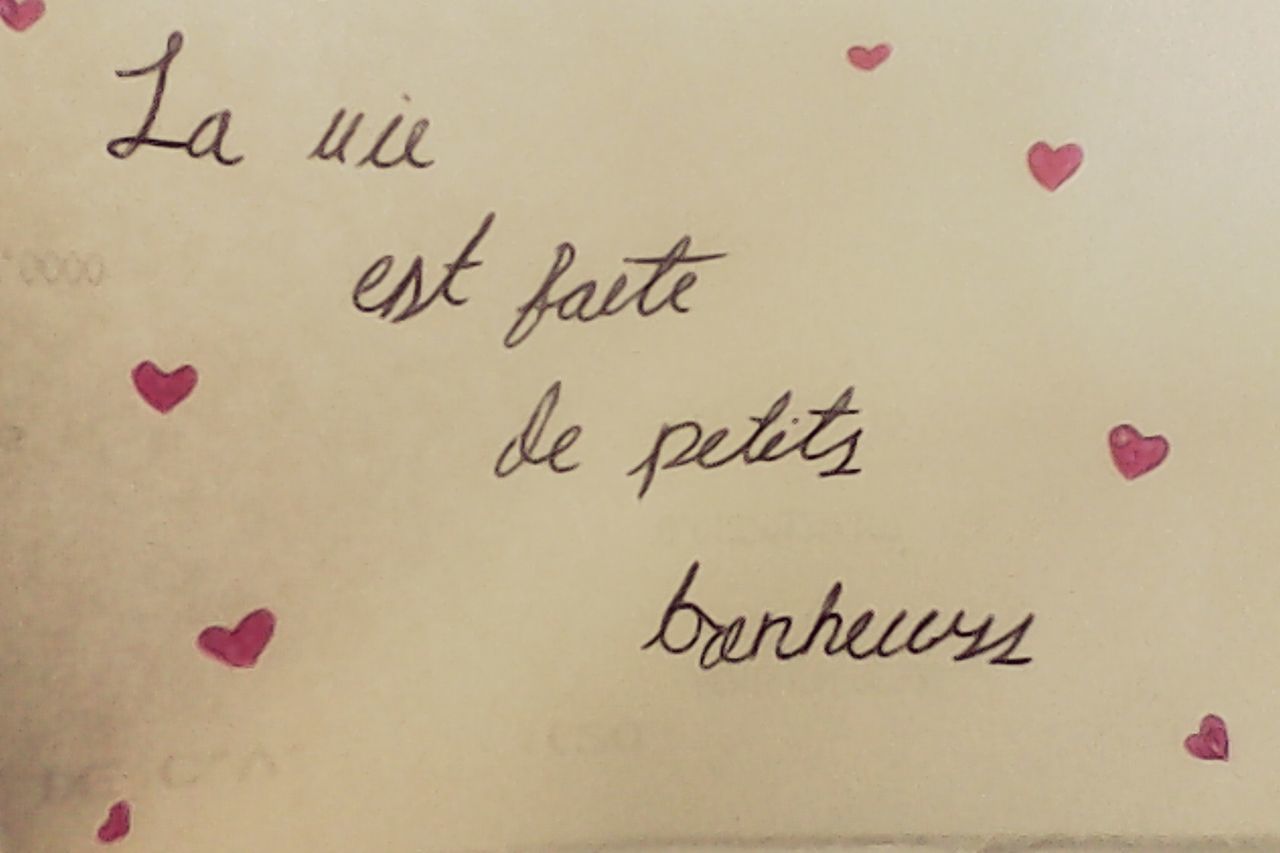 La vie
est faite
de petits
bonheurs